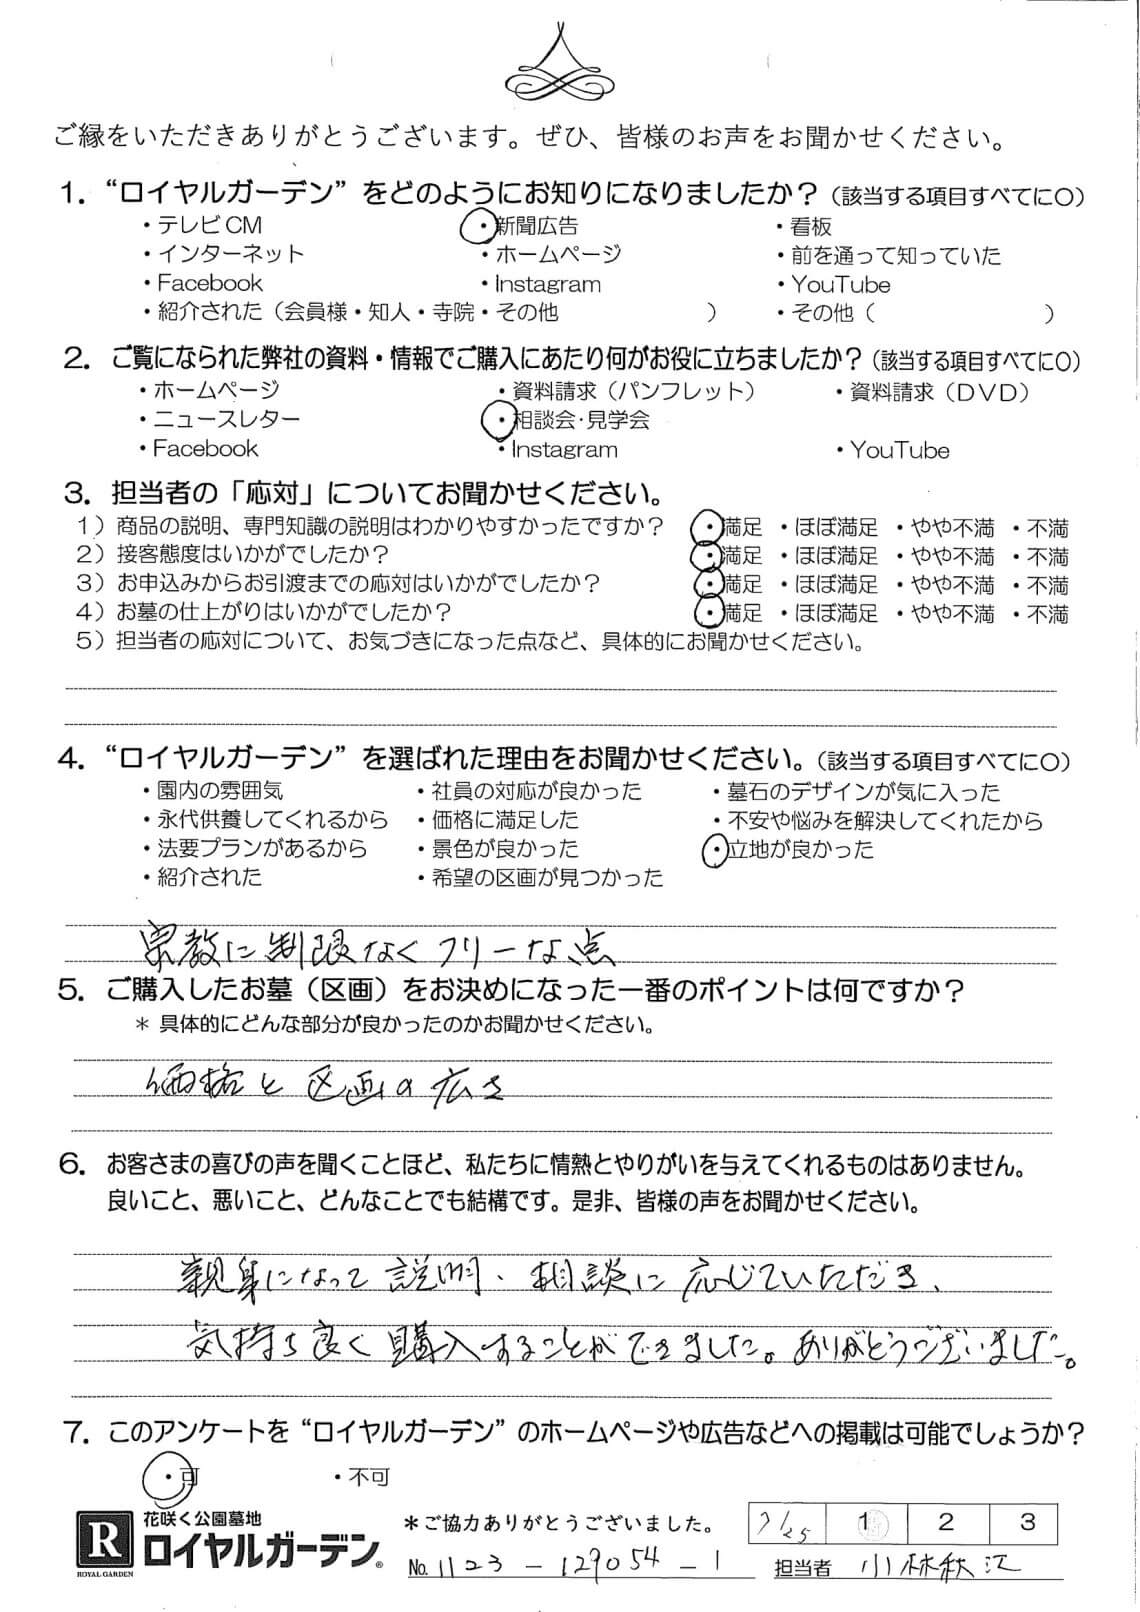 ご縁をいただきありがとうございます。ぜひ、皆様のお声をお聞かせください。
1. “ロイヤルガーデン”をどのようにお知りになりましたか？（該当する項目すべてに○）
・テレビCM ・新聞広告 ・看板
・インターネット ・ホームページ ・前を通って知っていた
・Facebook ・Instagram ・YouTube
・紹介された（会員様・知人・寺院・その他 ） ・その他（ ）
2. ご覧になられた弊社の資料・情報でご購入にあたり何がお役に立ちましたか？（該当する項目すべてに○）
・ホームページ ・資料請求（パンフレット） ・資料請求（DVD）
・ニュースレター ・相談会・見学会
・Facebook ・Instagram ・YouTube
3. 担当者の「応対」についてお聞かせください。
1）商品の説明、専門知識の説明はわかりやすかったですか？ ・満足 ・ほぼ満足 ・やや不満 ・不満
2）接客態度はいかがでしたか？ ・満足 ・ほぼ満足 ・やや不満 ・不満
3）お申込みからお引渡までの応対はいかがでしたか？ ・満足 ・ほぼ満足 ・やや不満 ・不満
4）お墓の仕上がりはいかがでしたか？ ・満足 ・ほぼ満足 ・やや不満 ・不満
5）担当者の応対について、お気づきになった点など、具体的にお聞かせください。
4. “ロイヤルガーデン”を選ばれた理由をお聞かせください。（該当する項目すべてに○）
・園内の雰囲気 ・社員の対応が良かった ・墓石のデザインが気に入った
・永代供養してくれるから ・価格に満足した ・不安や悩みを解決してくれたから
・法要プランがあるから ・景色が良かった ・立地が良かった
・紹介された ・希望の区画が見つかった
宗教に制限なくフリーな点
5. ご購入したお墓（区画）をお決めになった一番のポイントは何ですか？
＊ 具体的にどんな部分が良かったのかお聞かせください。
価格と区画の広さ
6. お客さまの喜びの声を聞くことほど、私たちに情熱とやりがいを与えてくれるものはありません。
良いこと、悪いこと、どんなことでも結構です。是非、皆様の声をお聞かせください。
親身になって説明、相談に応じていただき、
気持ち良く購入することができました。ありがとうございました。
7. このアンケートを“ロイヤルガーデン”のホームページや広告などへの掲載は可能でしょうか？
・可 ・不可
R ROYAL GARDEN
花咲く公園墓地
ロイヤルガーデン®
＊ご協力ありがとうございました。
7/25 1 2 3
No. 1123-129054-1 担当者 小林秋江